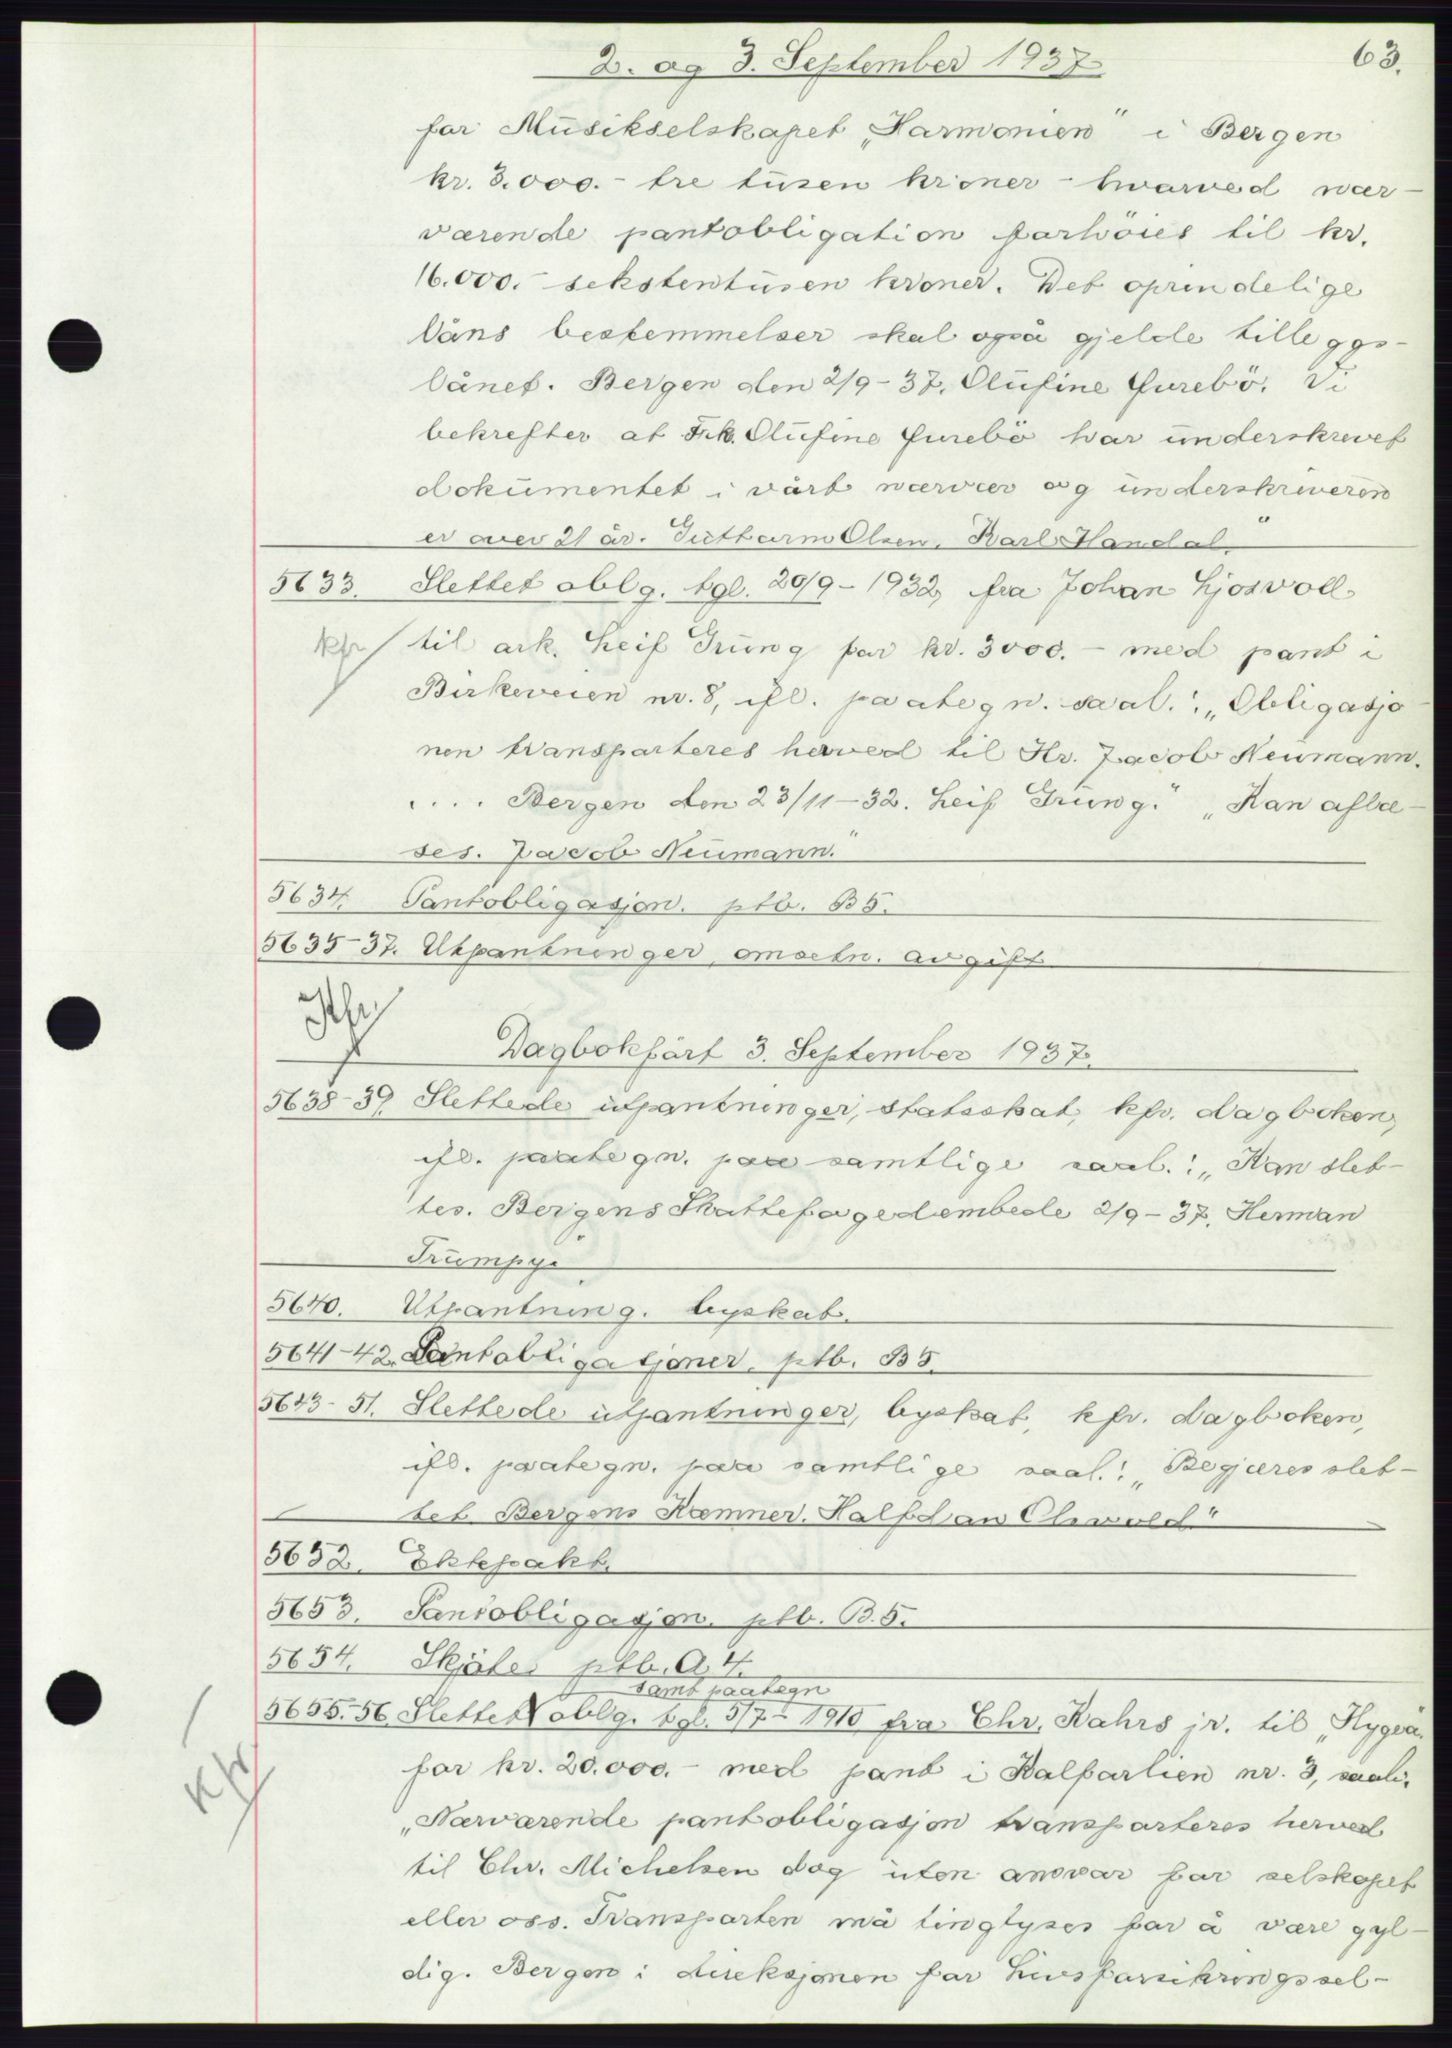 2. og 3. September 1937
63.
for Musikselskapet „Harmonien" i Bergen
kr. 3.000.- tre tusen kroner - hvorved nær-
værende pantobligation forhöies til kr.
16.000.- sekstentusen kroner. Det oprindelige
låns bestemmelser skal også gjelde tilleggs-
lånet. Bergen den 2/9-37. Olufine Furebö. Vi
bekrefter at Frk. Olufine Furebö har underskrevet
dokumentet i vårt nærvær og underskriveren
er over 21 år. Guttorm Olsen. Karl Handal."
5633. Slettet oblg. tgl. 20/9-1932, fra Johan Ljosvoll
kfr til ark. Leif Grung for kr. 3000.- med pant i
Birkeveien nr. 8, ifl. paategn. saal.: „Obligasjo-
nen transporteres herved til Hr. Jacob Neumann.
.... Bergen den 23/11-32. Leif Grung." „Kan aflæ-
ses. Jacob Neumann."
5634. Pantobligasjon. ptb. B5.
5635-37. Utpantninger, omsetn. avgift
Kfr
Dagbokfört 3. September 1937.
5638-39. Slettede utpantninger, statsskat, kfr. dagboken,
ifl. paategn. paa samtlige saal.: „Kan slet-
tes. Bergens Skattefogedembede 2/9-37. Herman
Trumpy."
5640. Utpantning. byskat.
5641-42. Pantobligasjoner. ptb. B5.
5643-51. Slettede utpantninger, byskat, kfr. dagboken,
ifl. paategn. paa samtlige saal.: „Begjæres slet-
tet Bergens Kæmner. Halfdan Olsvold"
5652. Ektepakt.
5653. Pantobligasjon. ptb. B.5.
5654. Skjöte. ptb. A.4.
samt paategn
5655-56. Slettet oblg. tgl. 5/7-1910 fra Chr. Kahrs jr. til „Hygea"
kfr
for kr. 20.000.- med pant i Kalfarlien nr. 3, saal.:
„Nærværende pantobligasjon transporteres herved
til Chr. Michelsen dog uten ansvar for selskapet
eller oss. Transporten må tinglyses for å være gyl-
dig. Bergen i direksjonen for Livsforsikringssel-